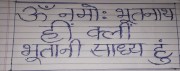 ॐ नमोः भूतनाथ
ही क्ली
भूतानी साध्य हुं